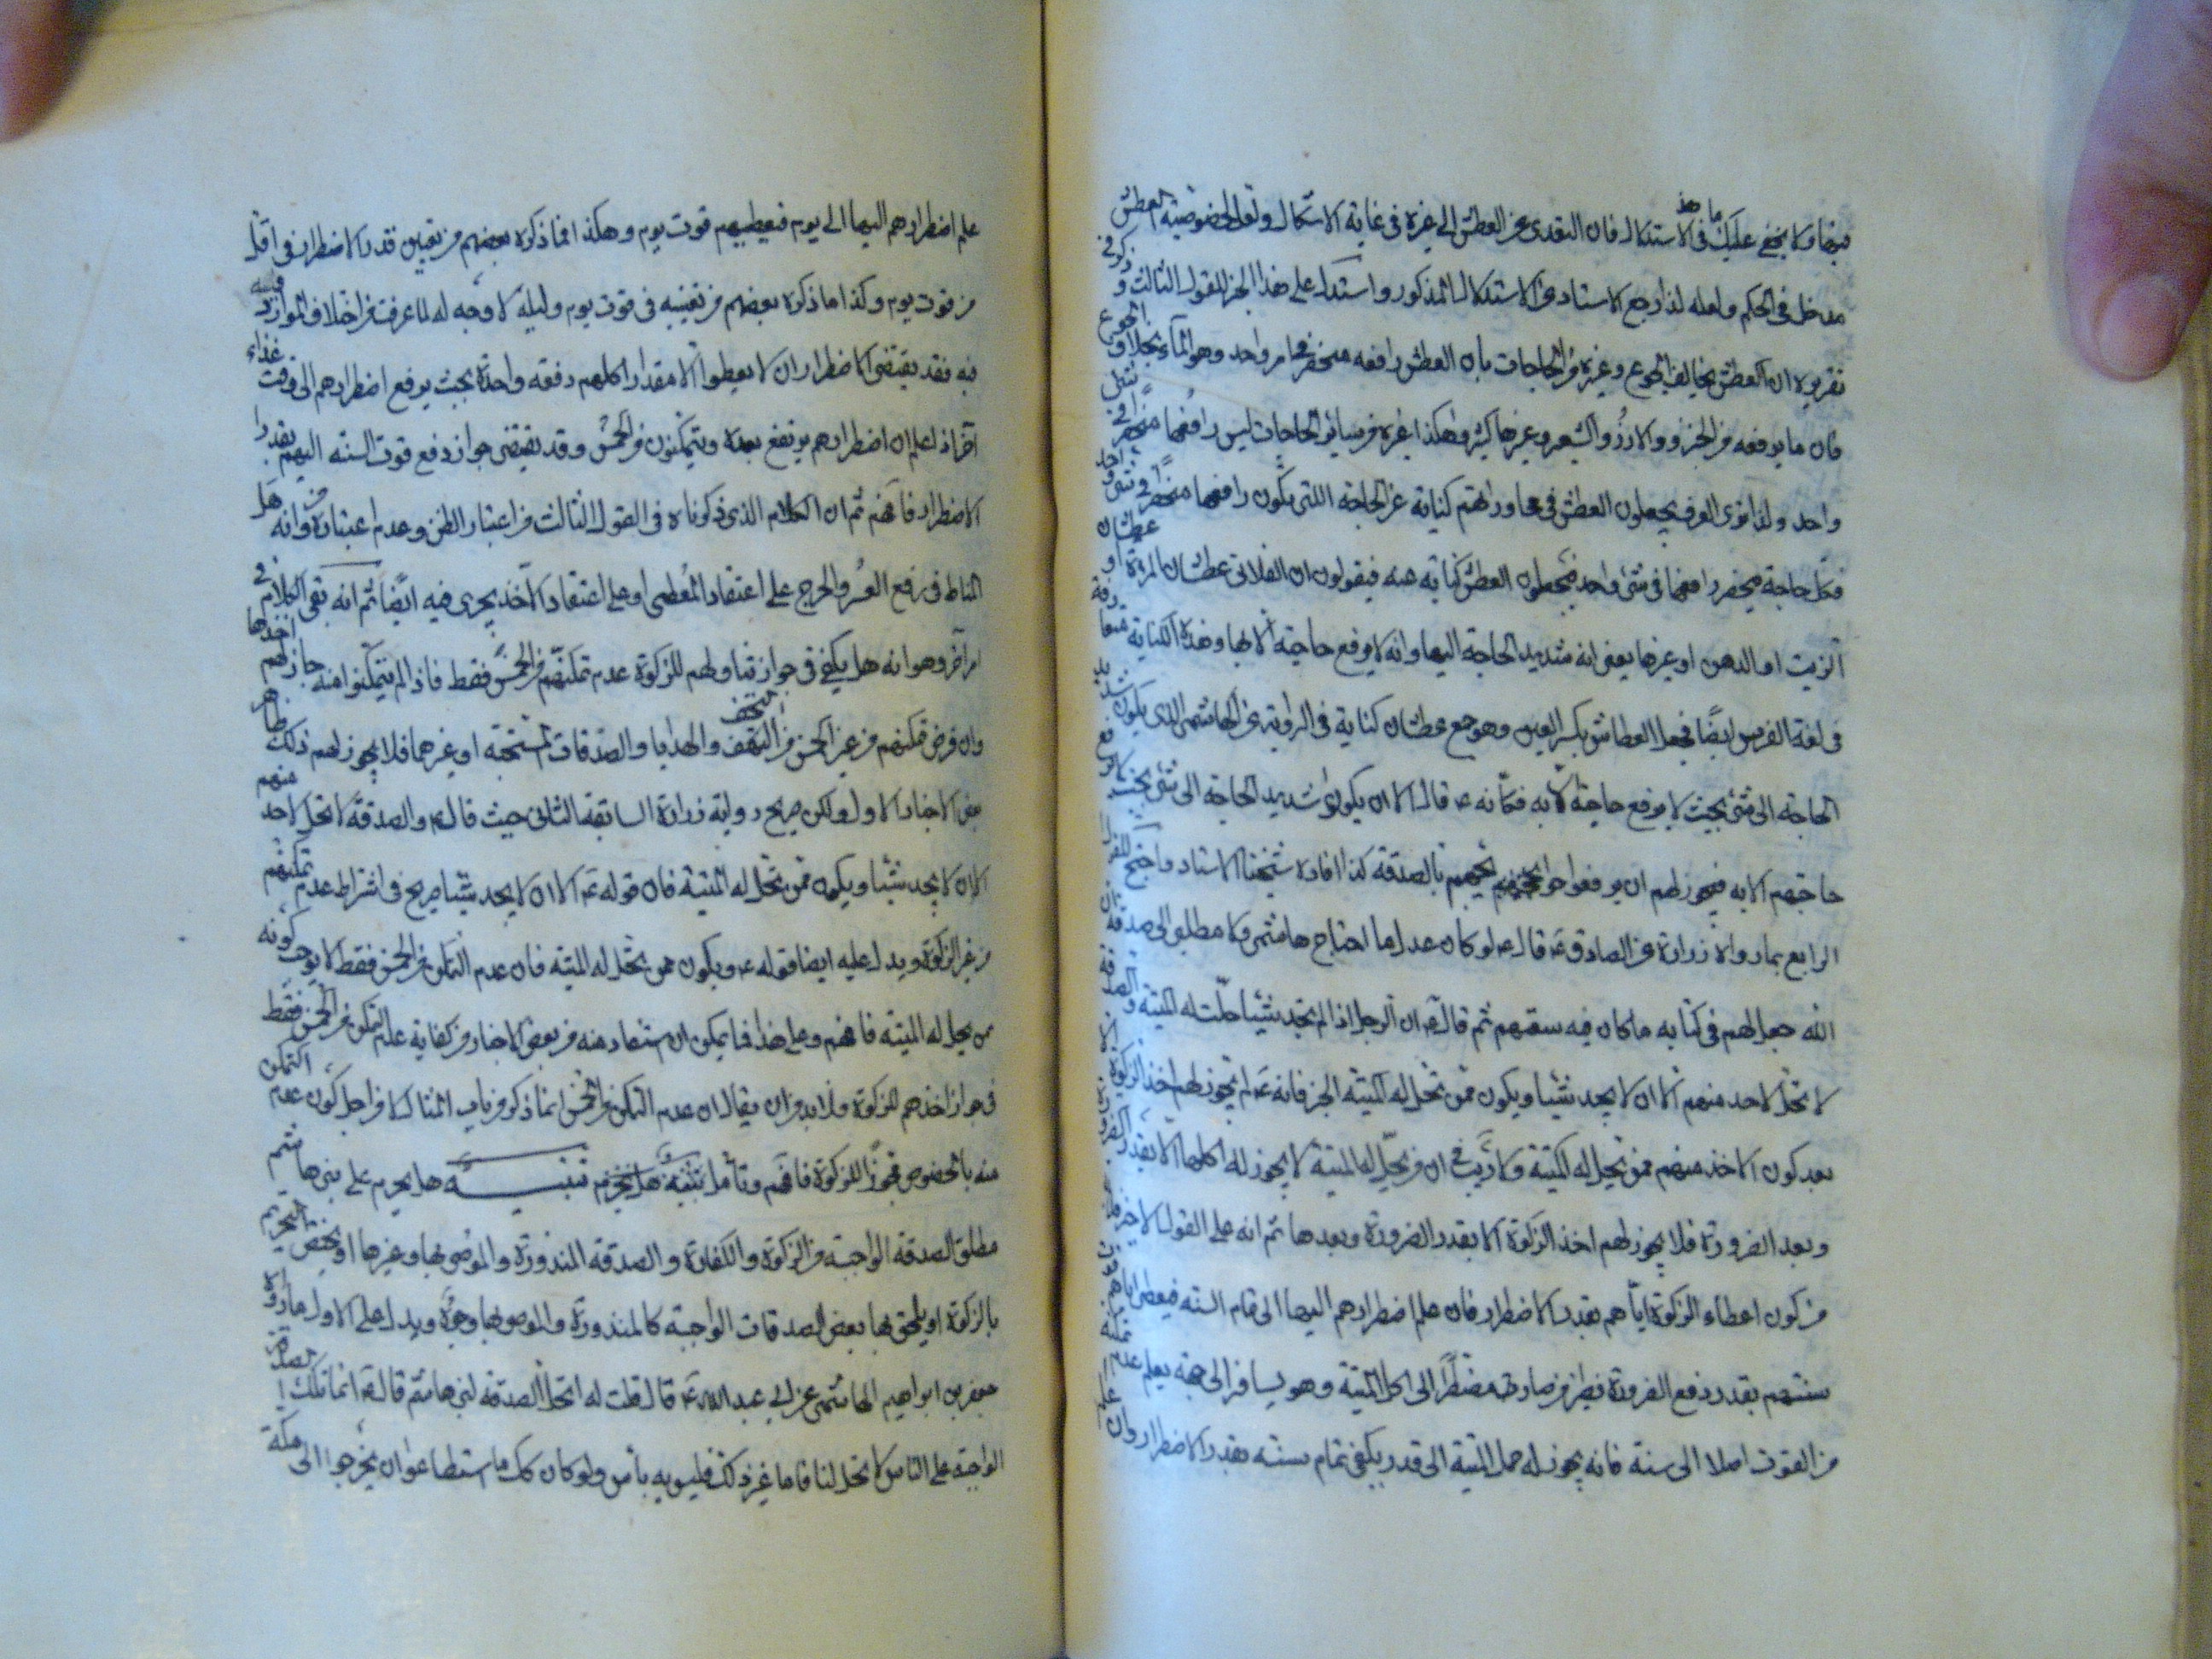 فيها ولا يخفى عليك ما فى هذا الاستدلال فان التعدى عن العطش الى غيره فى غاية الاشكال ولعل لخصوصية العطش
مدخل فى الحكم ولعله لذا رجع الاستاد عن الاستدلال المذكور واستدل على هذا الخبر للقول الثالث وذكر فى
تقريره ان العطش يخالف الجوع وغيره من الحاجات بان العطش رافعه منحصر فى امر واحد وهو الماء بخلاف الجوع
فان ما يرفعه من الخبز والارز والشعير وغيرها كثير وهكذا غيره من سائر الحاجات ليس رافعها منحصرا فى شئ
واحد ولذا نرى العرف يجعلون العطش فى محاوراتهم كناية عن الحاجة التى يكون رافعها منحصرا فى شئ واحد
فكل حاجة ينحصر رافعها فى شئ واحد فيجعلون العطش كناية عنه فيقولون ان الفلانى عطشان للمرءة او عطشان
الزيت او الدهن او غيرها يعنى انه شديد الحاجة اليها وانه لا يرفع حاجته الا بها وهذه الكناية متعارفة
فى لغة الفرس ايضا فجعل العطاش بكسر العين وهو جمع عطشان كناية فى الرواية عن الهاشمى الذى يكون شديد
الحاجة الى شئ بحيث لا يرفع حاجته الا به فكانه ع قال الا ان يكونوا شديد الحاجة الى شئ بحيث لا يرفع
حاجتهم الا به فيجوز لهم ان يرفعوا حوائجهم بالصدقة كذا افاده شيخنا الاستاد واحتج للقول
الرابع بما رواه زرارة عن الصادق ع قال ع لو كان عدل ما احتاج هاشمى ولا مطلبى الى صدقة ان
الله جعل لهم فى كتابه ما كان فيه سعتهم ثم قال ع ان الرجل اذا لم يجد شيئا حلت له الميتة والصدقة
لا تحل لاحد منهم الا ان لا يجد شيئا ويكون ممن تحل له الميتة الخبر فانه ع لم يجوز لهم اخذ الزكوة الا
بعد كون الاخذ منهم ممن تحل له الميتة ولا ريب فى ان من يحل له الميتة لا يجوز له اكلها الا بقدر الضرورة
وبعد الضرورة فلا يجوز لهم اخذ الزكوة الا بقدر الضرورة وبعدها ثم انه على القول الاخير
من كون اعطاء الزكوة اياهم بقدر الاضطرار فان علم اضطرارهم اليها الى تمام السنة فيعطى اياهم
سنتهم بقدر دفع الضرورة نظير من صار مضطرا الى اكل الميتة وهو يسافر الى جهة يعلم عدم تمكنه
من القوت اصلا الى سنة فانه يجوز له حمل الميتة الى قدر يكفى تمام سنته بقدر الاضطرار وان علم
علم اضطرارهم اليها الى يوم فيعطيهم قوت يوم وهكذا فما ذكره بعضهم من تعيين قدر الاضطرار فى اقل
من قوت يوم وكذا ما ذكره بعضهم من تعيينه فى قوت يوم وليلة لا وجه له لما عرفت من اختلاف الموارد فيه
فيه فقد يقتضى الاضطرار ان لا يعطوا الا مقدار اكلهم دفعة واحدة بحيث يرفع اضطرارهم الى وقت غذاء
آخر اذا علم ان اضطرارهم يرتفع بعده ويتمكنون من الخمس وقد يقتضى جواز دفع قوت السنة اليهم بقدر
الاضطرار فافهم ثم ان الكلام الذى ذكرناه فى القول الثالث من اعتبار الظن وعدم اعتباره وانه هل
المناط فى رفع العسر والحرج على اعتقاد المعطى او على اعتقاد الآخذ يجرى فيه ايضا ثم انه بقى الكلام فى
امر آخر وهو انه هل يكفى فى جواز تناولهم للزكوة عدم تمكنهم من الخمس فقط فاذا لم يتمكنوا منه جاز لهم اخذها
وان فرض تمكنهم من غير الخمس من التحف والهدايا والصدقات المستحبة او غيرهما فلا يجوز لهم ذلك ظاهر
بعض الاخبار الاول ولكن صريح رواية زرارة السابقة الثانى حيث قال ع والصدقة لا تحل لاحد منهم
الا ان لا يجد شيئا ويكون ممن تحل له الميتة فان قوله ع الا ان لا يجد شيئا صريح فى اشتراط عدم تمكنهم
من غير الزكوة ويدل عليه ايضا قوله ع ويكون ممن تحل له الميتة فان عدم التمكن من الخمس فقط لا يوجب كونه
من يحل له الميتة فافهم وعلى هذا فما يمكن ان يستفاد منه من بعض الاخبار من كفاية عدم التمكن من الخمس فقط
فى جواز اخذهم للزكوة فلا بد من ان يقال ان عدم التمكن من الخمس انما ذكر من باب المثال لا من اجل كون عدم التمكن
منه بالخصوص مجوزا للزكوة فافهم وتأمل تنبيه هل يحرم على بنى هاشم
مطلق الصدقة الواجبة من الزكوة والكفارة والصدقة المنذورة والموصى بها وغيرها او يختص التحريم
بالزكوة او يلحق بها بعض الصدقات الواجبة كالمنذورة والموصى بها وجوه ويدل على الاول ما رواه
جعفر بن ابراهيم الهاشمى عن ابى عبد الله ع قال قلت له اتحل الصدقة لبنى هاشم قال ع انما تلك الصدقة
الواجبة على الناس لا تحل لنا فاما غير ذلك فليس به بأس ولو كان كك ما استطاعوا ان يخرجوا الى مكة